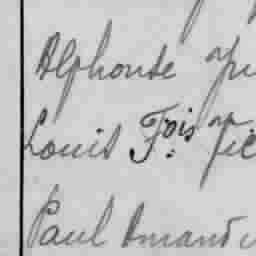 Alphonse
Louis Fois
Paul Amand